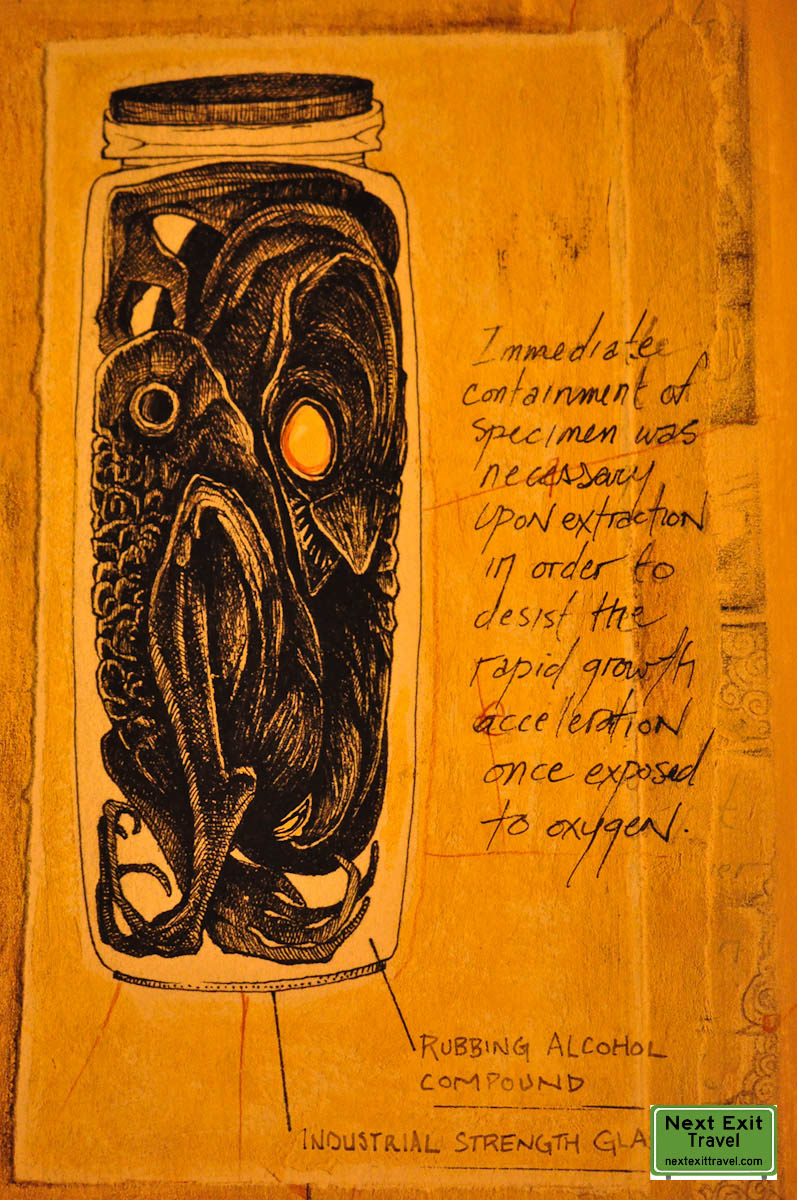 Immediate
containment of
specimen was
necessary
upon extraction
in order to
desist the
rapid growth
acceleration
once exposed
to oxygen.
RUBBING ALCOHOL
COMPOUND
INDUSTRIAL STRENGTH
Next Exit
Travel
nextexittravel.com